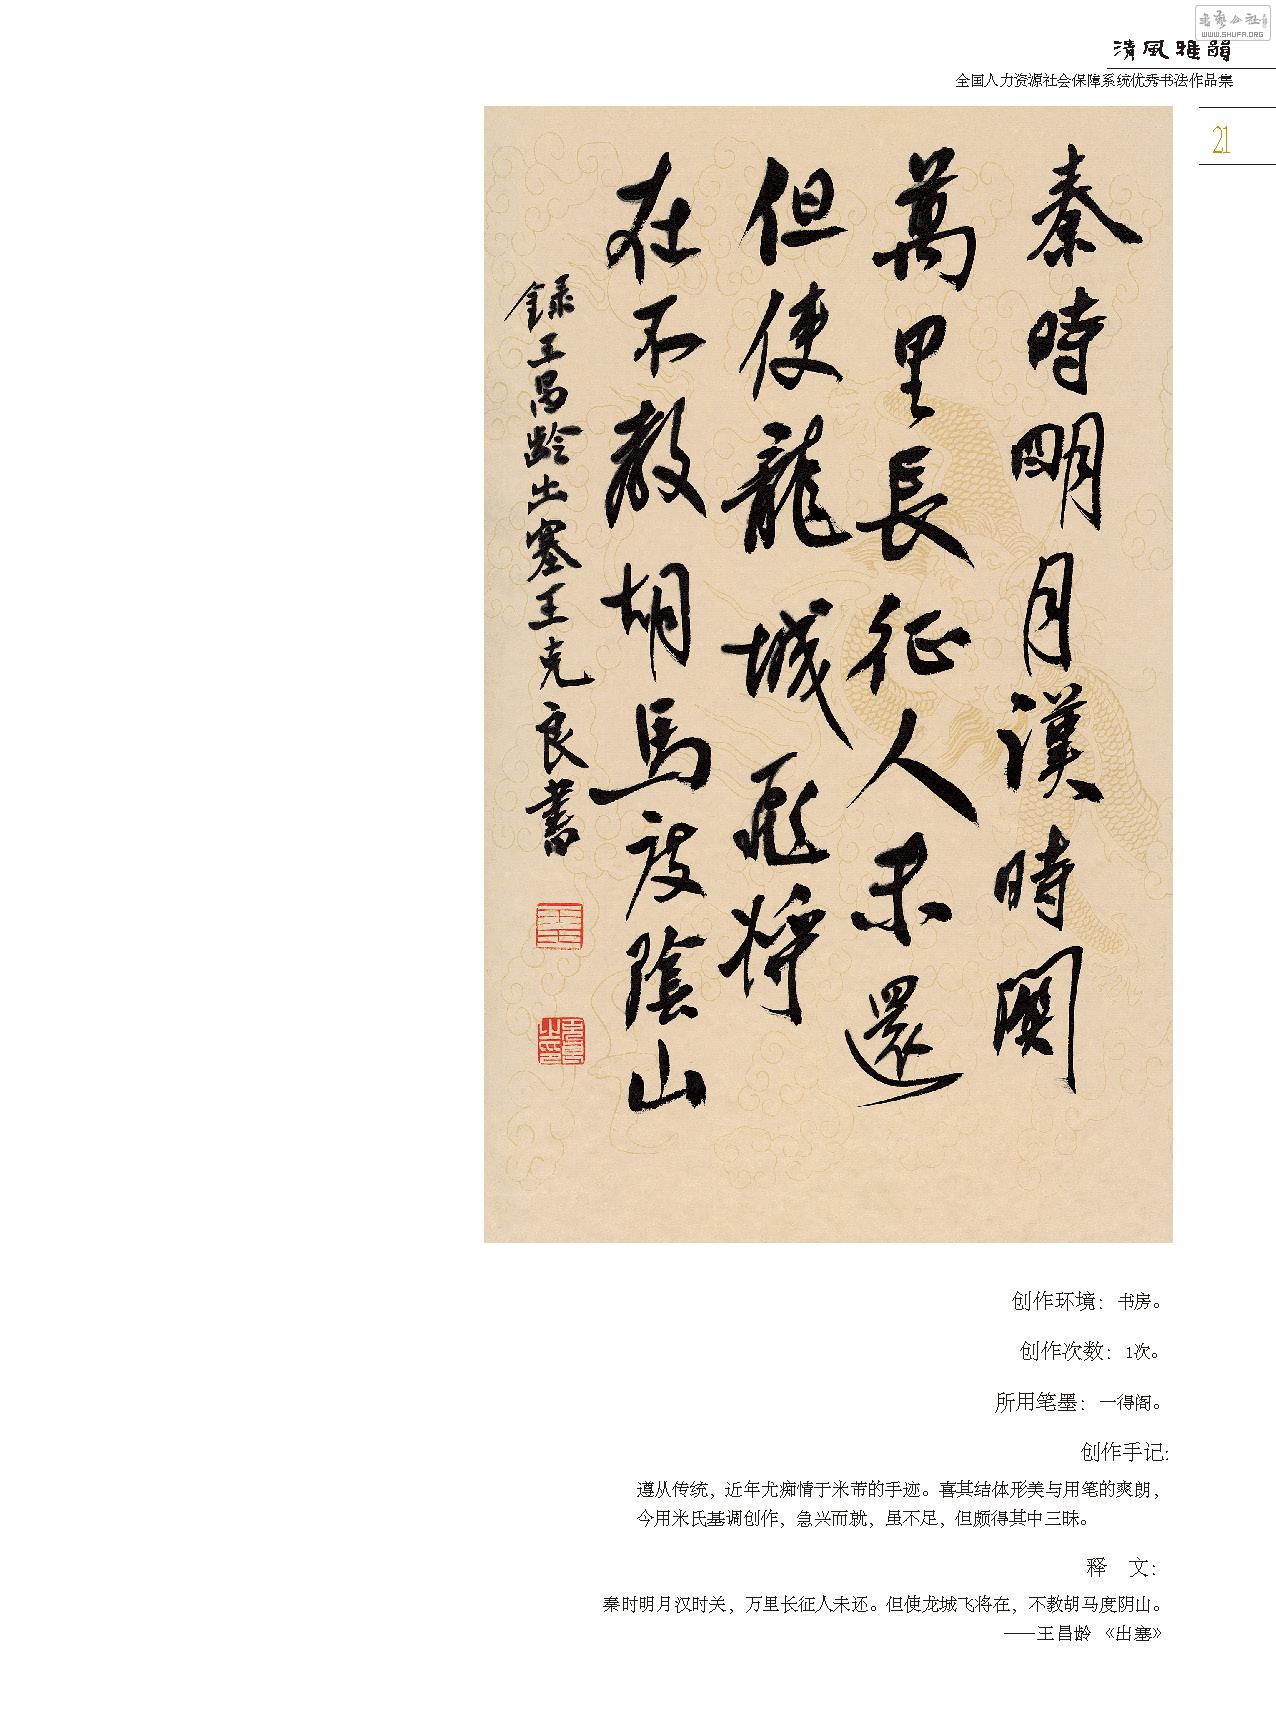 書藝公社
WWW.SHUFA.ORG
清風雅韻
全国人力资源社会保障系统优秀书法作品集
21
秦時明月漢時関
萬里長征人未還
但使龍城飛将
在不教胡馬度陰山
録王昌齡出塞王克良書
创作环境：书房。
创作次数：1次。
所用笔墨：一得阁。
创作手记:
遵从传统，近年尤痴情于米芾的手迹。喜其结体形美与用笔的爽朗，
今用米氏基调创作，急兴而就，虽不足，但颇得其中三昧。
释　文：
秦时明月汉时关，万里长征人未还。但使龙城飞将在，不教胡马度阴山。
——王昌龄 《出塞》